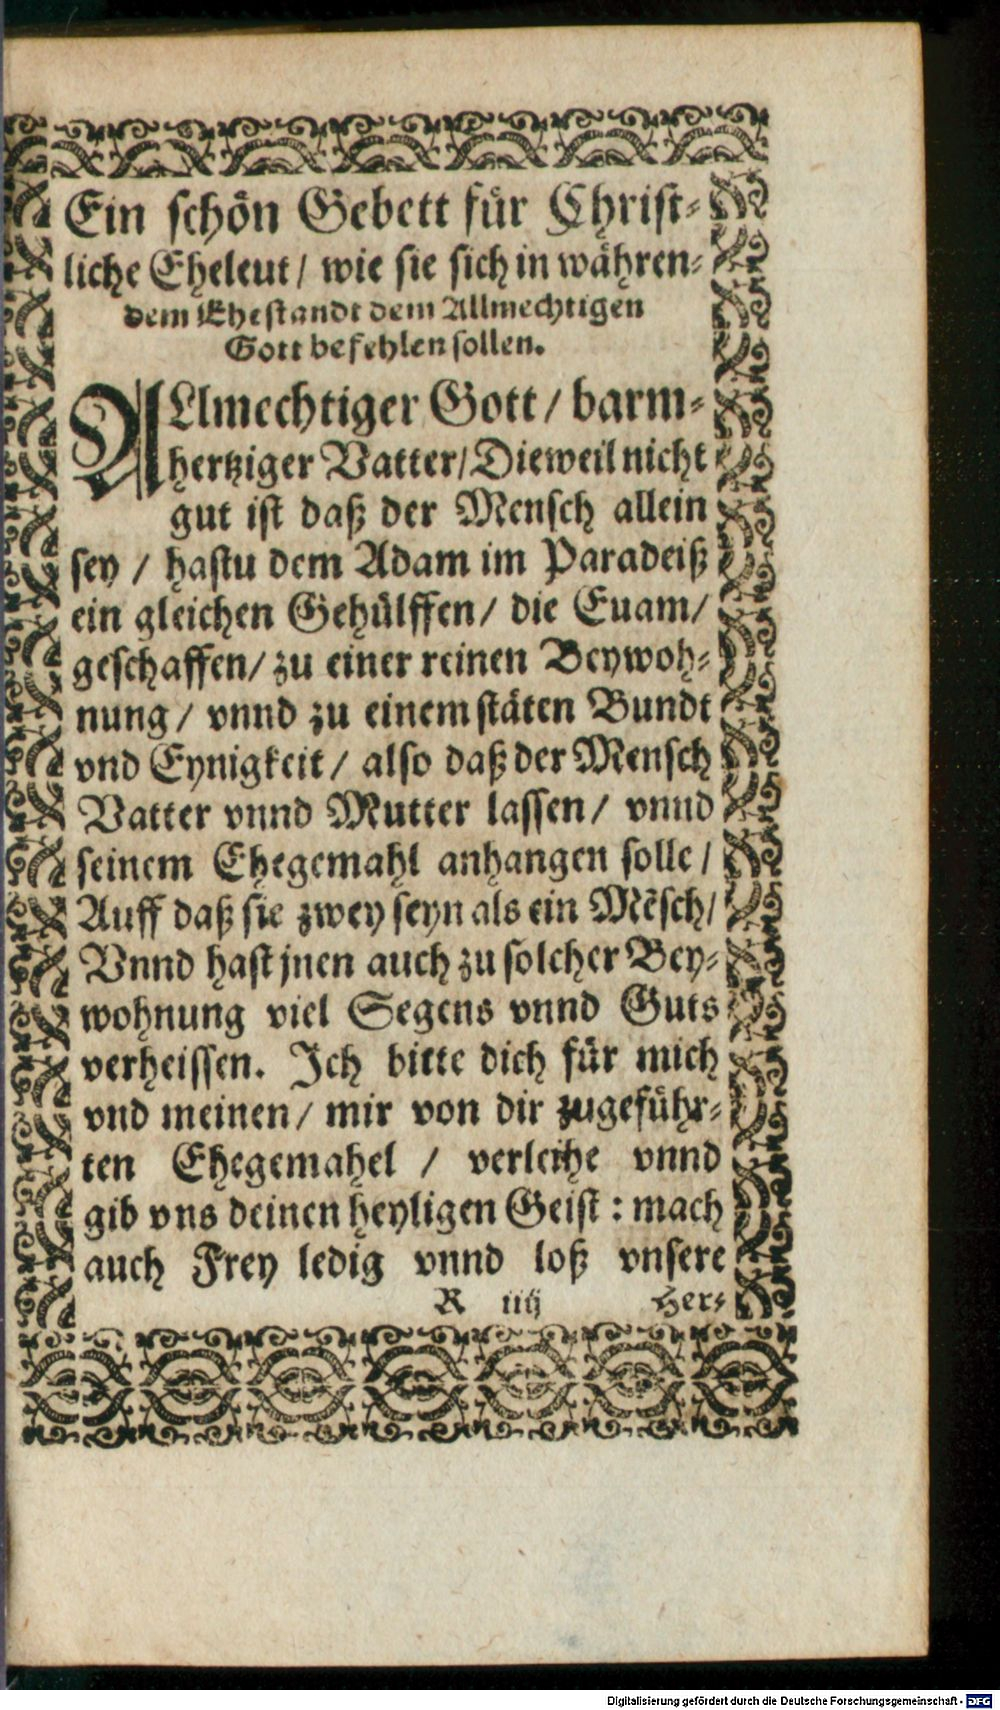 Ein schön Gebett für Christ-
liche Eheleut / wie sie sich in währen-
dem Ehestandt dem Allmechtigen
Gott befehlen sollen.
ALlmechtiger Gott / barm-
hertziger Vatter / Dieweil nicht
gut ist daß der Mensch allein
sey / hastu dem Adam im Paradeiß
ein gleichen Gehülffen / die Euam /
geschaffen / zu einer reinen Beywoh-
nung / vnnd zu einem stäten Bundt
vnd Eynigkeit / also daß der Mensch
Vatter vnnd Mutter lassen / vnnd
seinem Ehegemahl anhangen solle /
Auff daß sie zwey seyn als ein Mẽsch /
Vnnd hast jnen auch zu solcher Bey-
wohnung viel Segens vnnd Guts
verheissen. Ich bitte dich für mich
vnd meinen / mir von dir zugeführ-
ten Ehegemahel / verleihe vnnd
gib vns deinen heyligen Geist : mach
auch Frey ledig vnnd loß vnsere
R iiij Her-
Digitalisierung gefördert durch die Deutsche Forschungsgemeinschaft - DFG